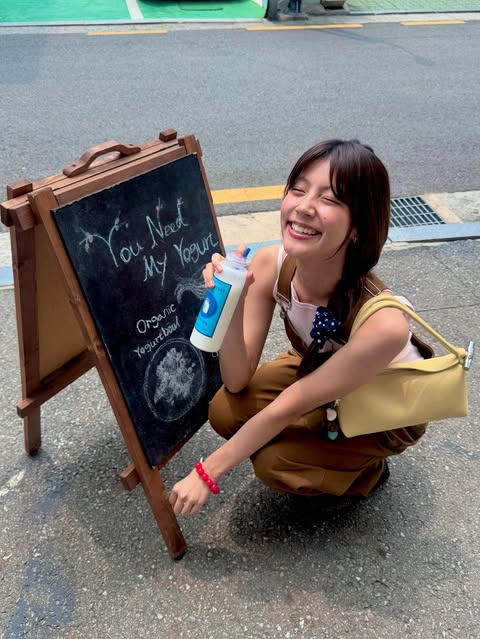 You Need
My Yogurt
Organic
Yogurtbowl